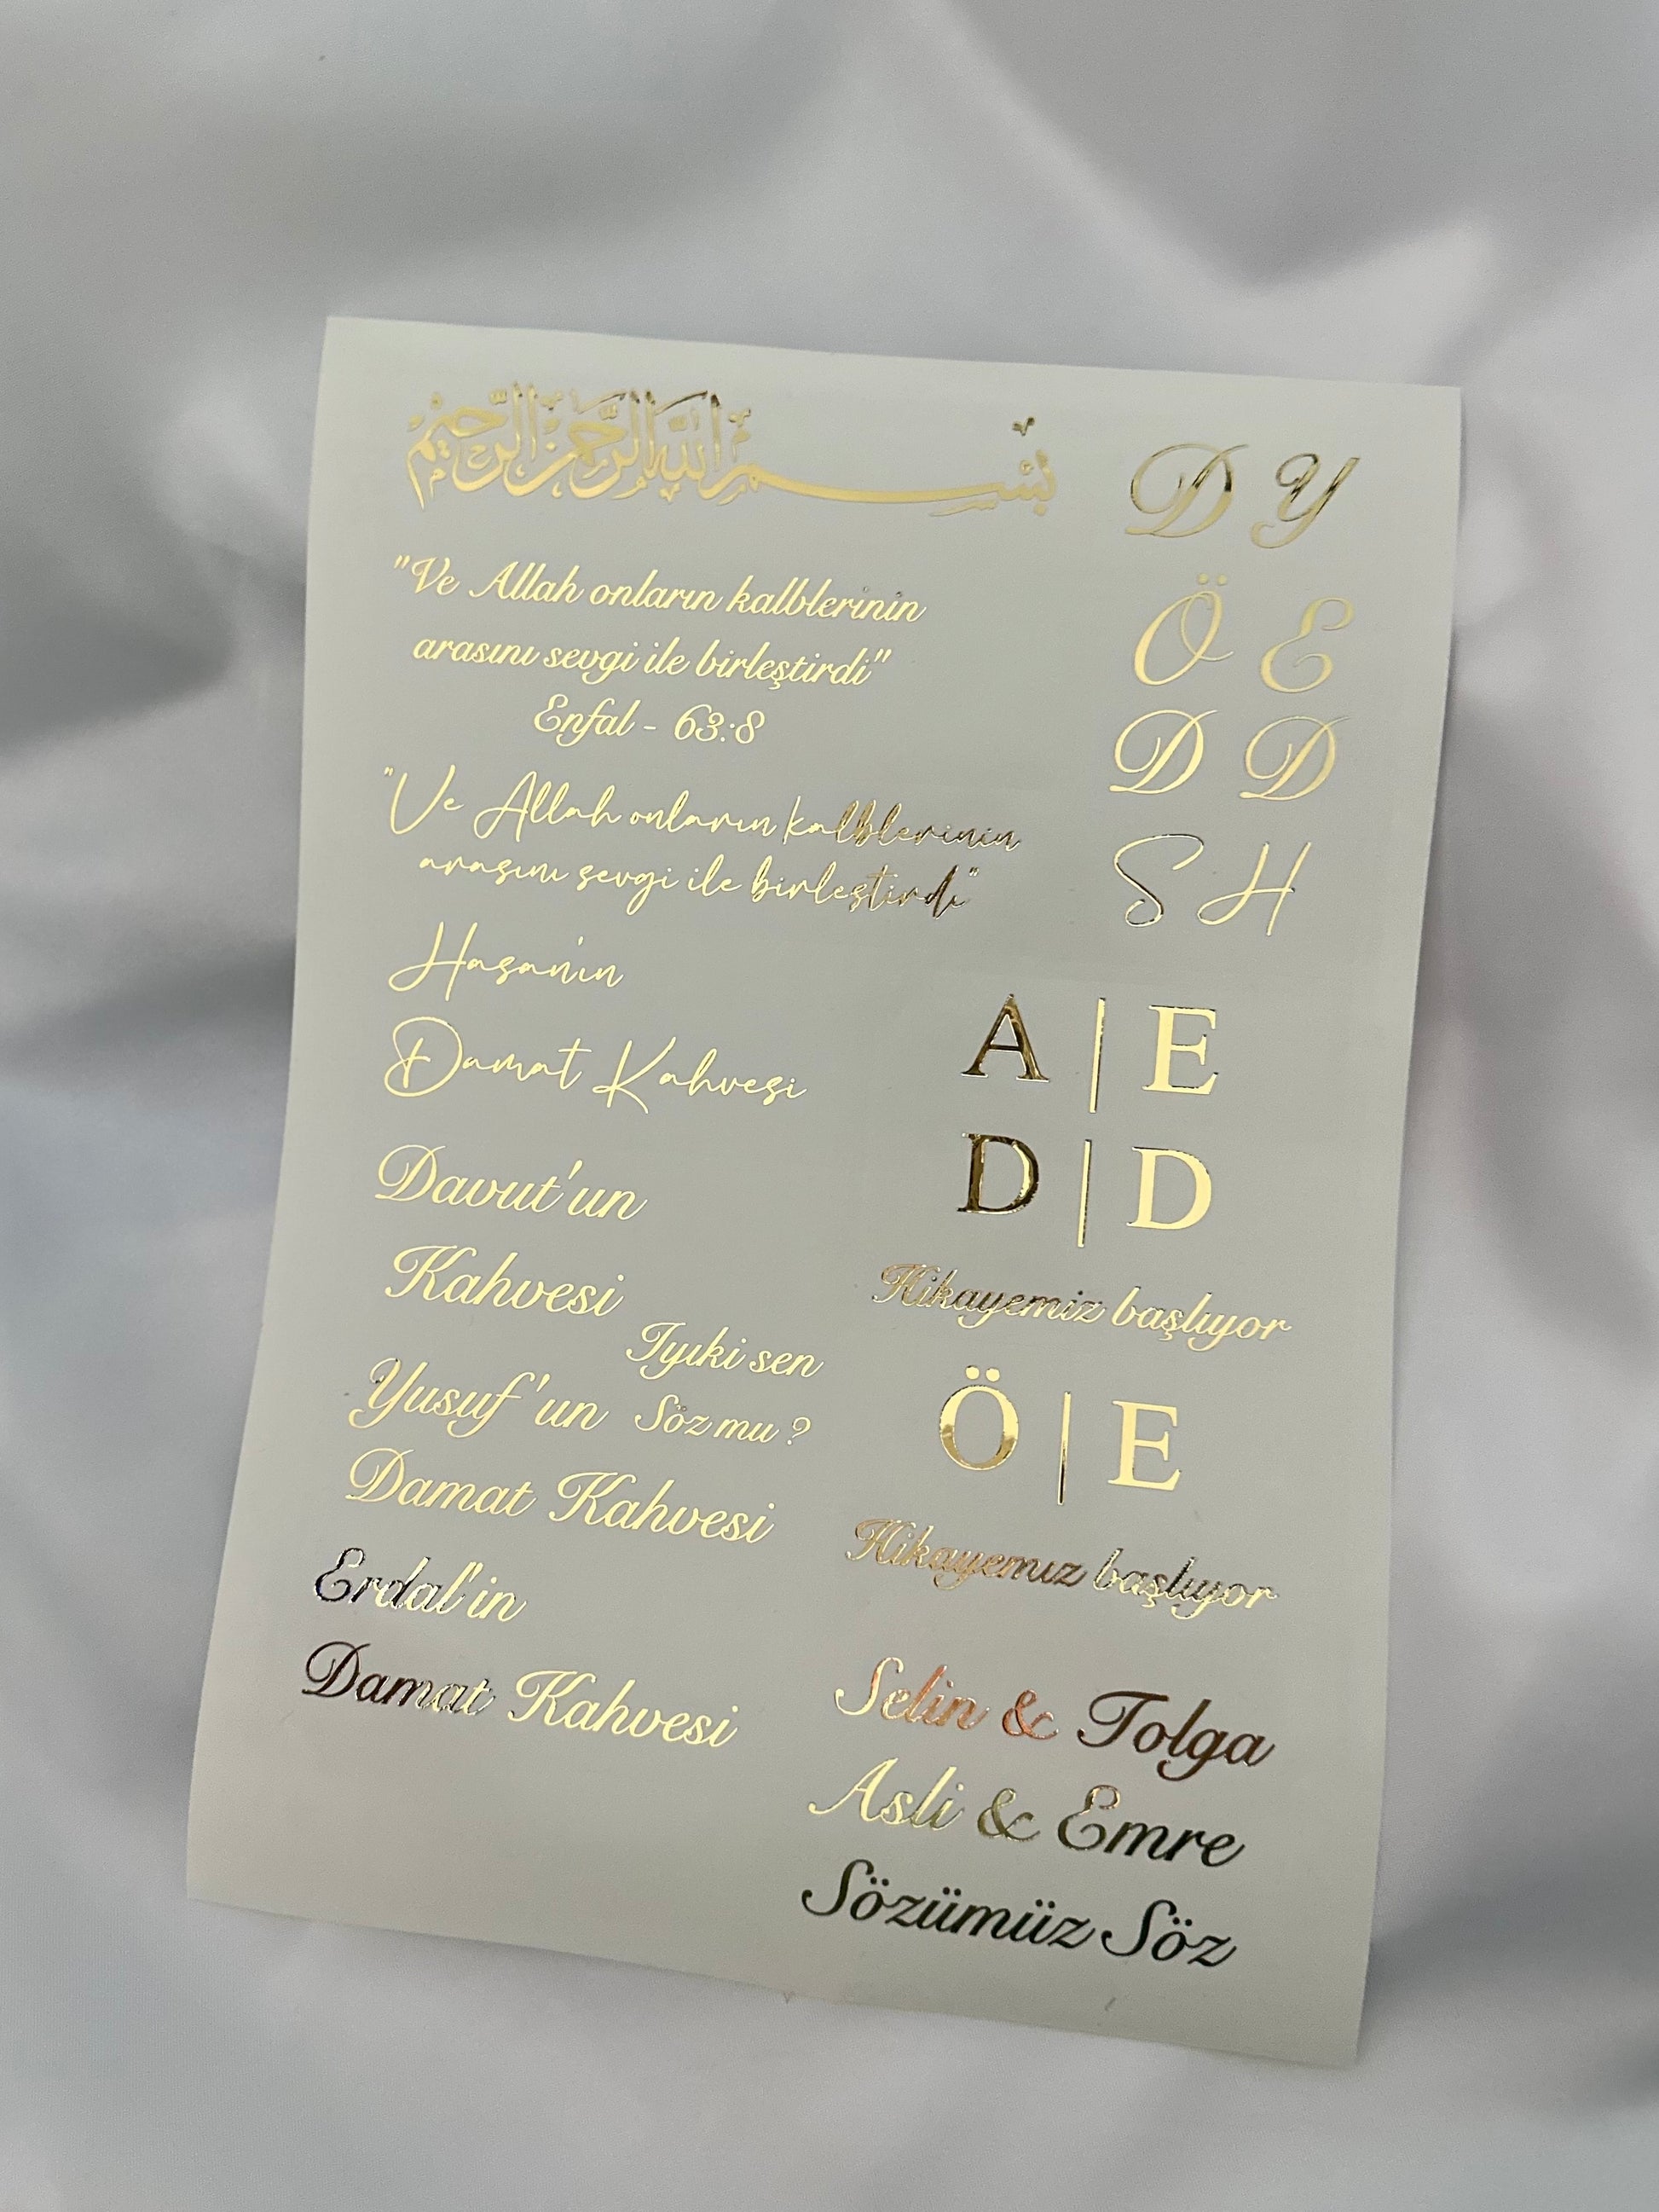 بسم الله الرحمن الرحيم
"Ve Allah onların kalblerinin
arasını sevgi ile birleştirdi"
Enfal - 63:8
"Ve Allah onların kalblerinin
arasını sevgi ile birleştirdi"
Hasan'ın
Damat Kahvesi
Davut'un
Kahvesi
Iyıki sen
Yusuf'un
Söz mu ?
Damat Kahvesi
Erdal'in
Damat Kahvesi
D Y
Ö E
D D
S H
A | E
D | D
Hikayemiz başlıyor
Ö | E
Hikayemız başlıyor
Selin & Tolga
Asli & Emre
Sözümüz Söz